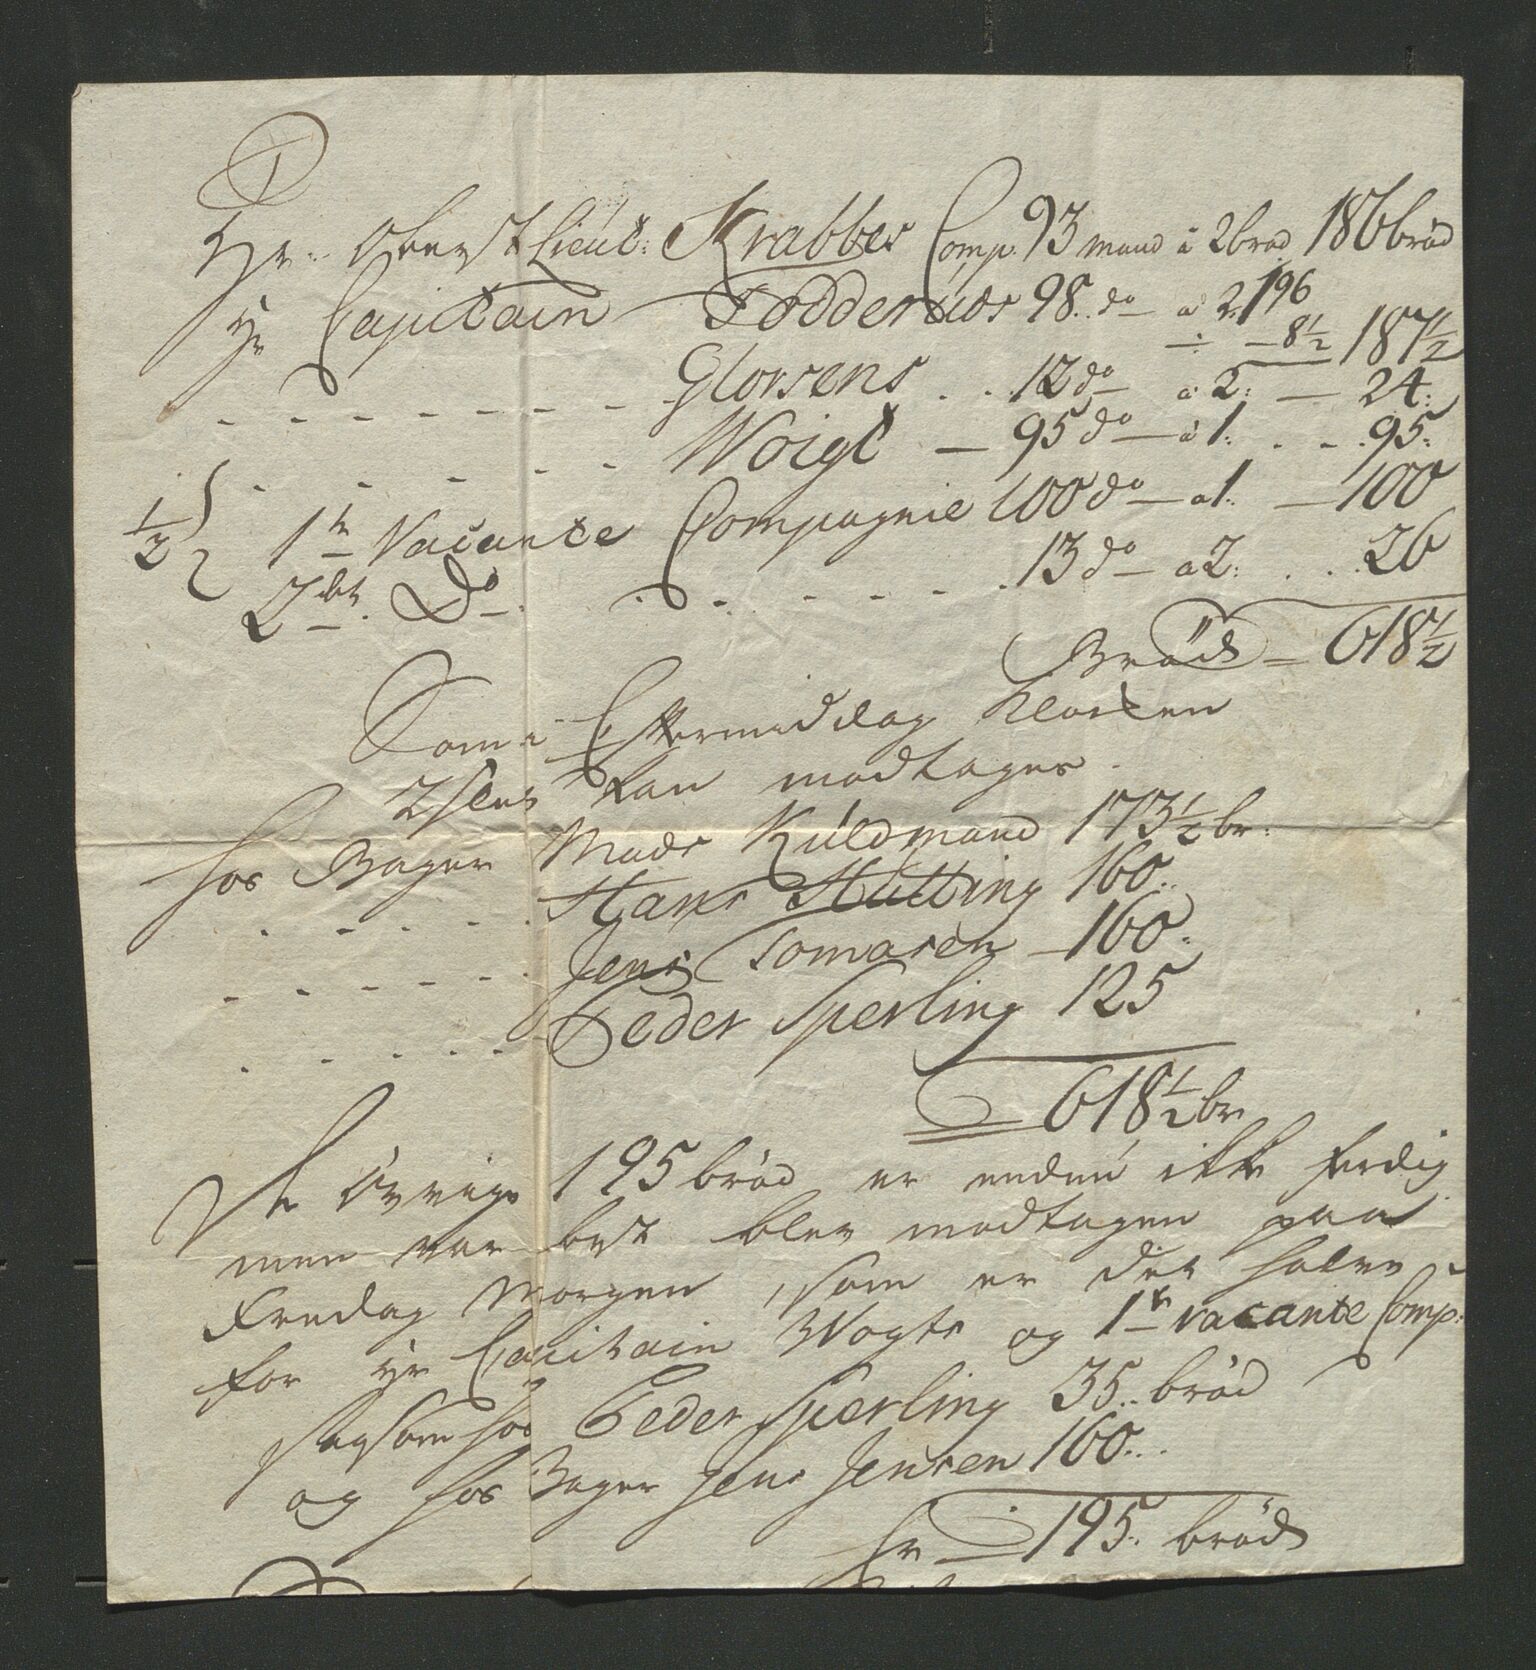 Hr. Oberst Lieut: Krabbes Comp. 93 mand á 2 brød 186 brød
Hr Capitain Todderuds 98. do — a 2. 196
÷ — 8½ 187½
- - - - - - - Glorsens . . 12 do — a 2: — 24:
- - - - - - Woigt — 95 do — á 1: . - . 95:
½ { 1te Vacante Compagnie 100 do — a 1. — 100
2det. Do . - - - - - . 13 do — a 2: . . . 26
Brød = 618½
Som i Eftermiddag Klocken
2 slet kan modtages.
hos Bager Mads Kuldmand 173½ br:
. - - - - . Hans Hütting 160..
- - - - - . Jens Tomasen — 160:
. - . - - - Peder Sperling 125
= 618½ br
De övrige 195 brød er endnu ikke ferdig
men var best blev modtagen paa
Fredag Morgen, som er det halve
for Hr Capitain Wogts og 1te vacante Comp:
sagsom hos Peder Sperling 35.. brød
og hos Bager Jens Jensen 160...
Er — 195. brød